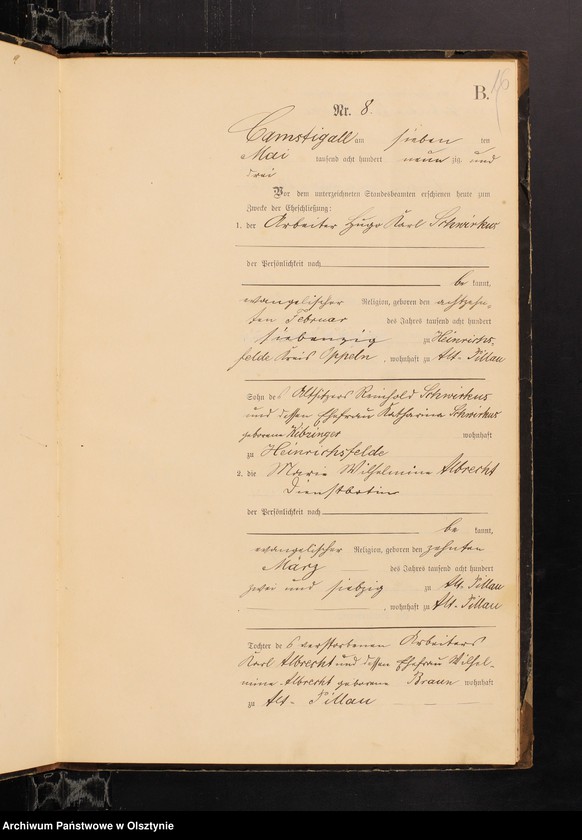 B.
Nr. 8.
Camstigall am sieben ten
Mai tausend acht hundert neun zig und
drei
Vor dem unterzeichneten Standesbeamten erschienen heute zum
Zwecke der Eheschließung:
1. der Arbeiter Hugo Karl Schwirkus
der Persönlichkeit nach
be kannt,
evangelischer Religion, geboren den achtzehn-
ten Februar des Jahres tausend acht hundert
siebenzig zu Heinrichs-
felde Kreis Oppeln, wohnhaft zu Alt-Pillau
Sohn des Altsitzers Reinhold Schwirkus
und dessen Ehefrau Katharina Schwirkus
geborene wohnhaft
zu Heinrichsfelde
2. die Marie Wilhelmine Albrecht
Dienstbotin
der Persönlichkeit nach
be kannt,
evangelischer Religion, geboren den zehnten
März des Jahres tausend acht hundert
zwei und siebzig zu Alt-Pillau
, wohnhaft zu Alt-Pillau
Tochter des verstorbenen Arbeiters
Karl Albrecht und dessen Ehefrau Wilhel-
mine Albrecht geborene Braun wohnhaft
zu Alt-Pillau
Archiwum Państwowe w Olsztynie